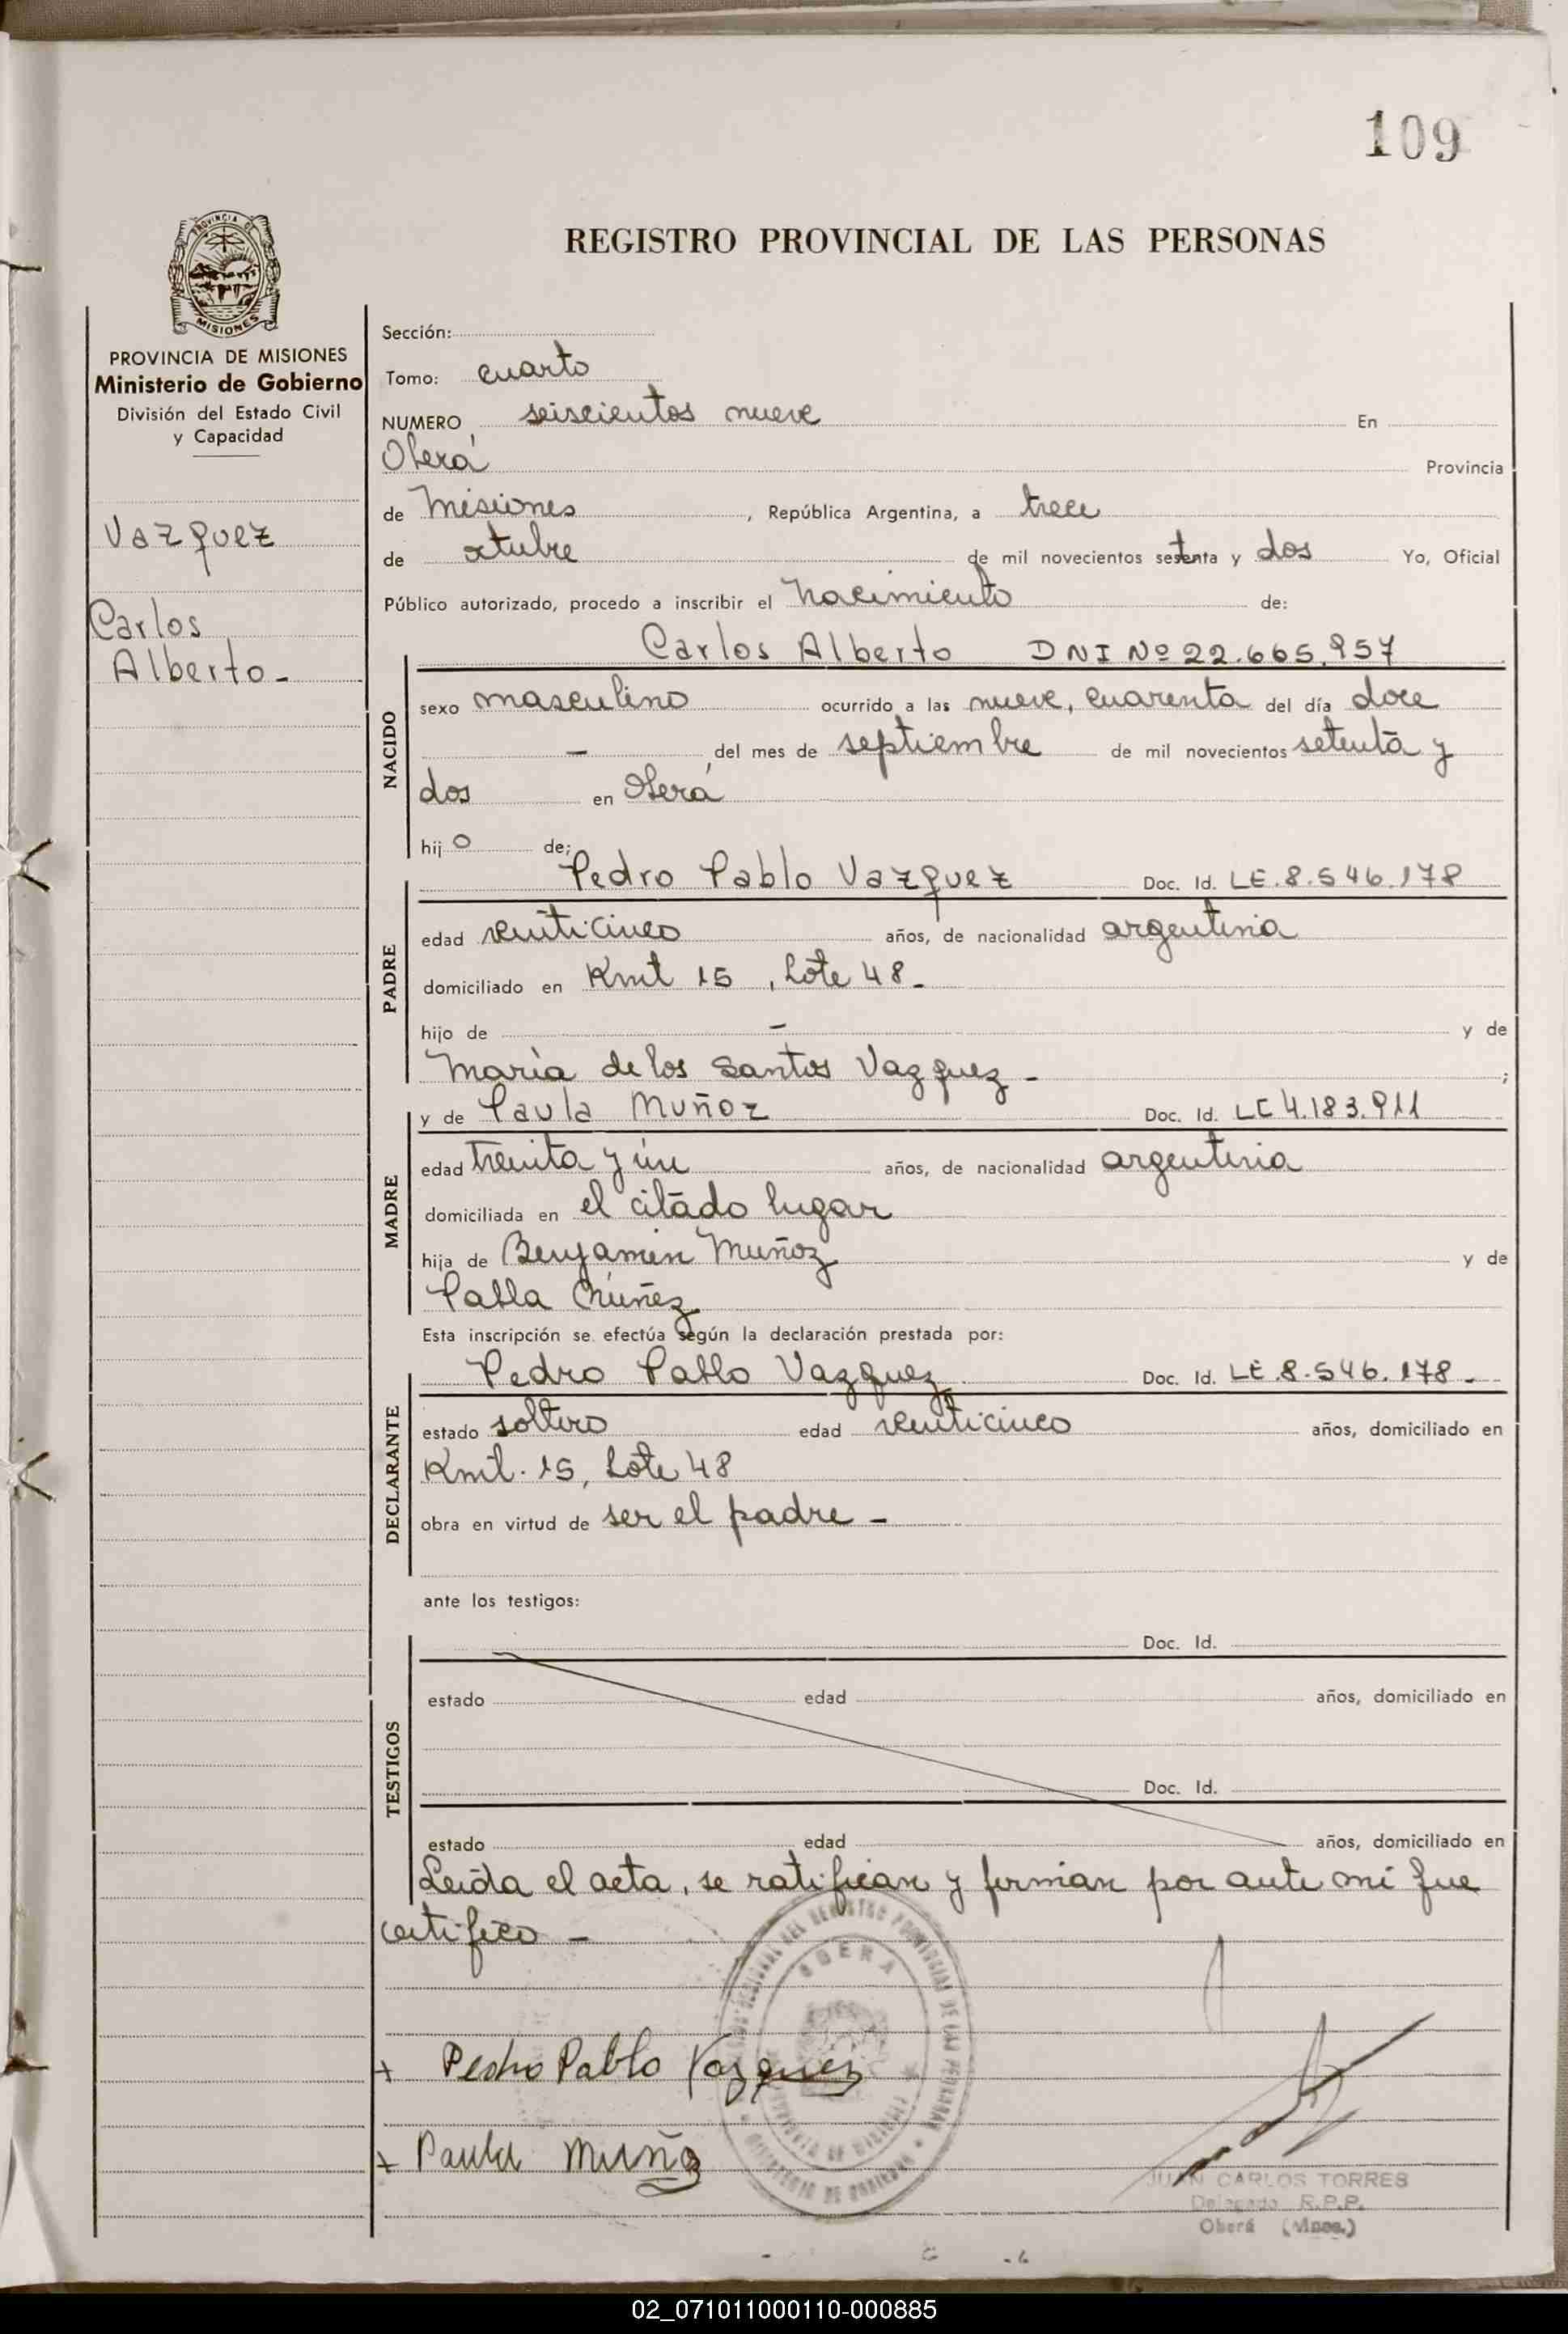 109
PROVINCIA DE MISIONES
REGISTRO PROVINCIAL DE LAS PERSONAS
PROVINCIA DE MISIONES
Ministerio de Gobierno
División del Estado Civil
y Capacidad
Vazquez
Carlos
Alberto -
Sección:
Tomo: cuarto
NUMERO seiscientos nueve En
Oberá Provincia
de Misiones, República Argentina, a trece
de octubre de mil novecientos setenta y dos Yo, Oficial
Público autorizado, procedo a inscribir el nacimiento de:
Carlos Alberto DNI Nº 22.665.957
NACIDO
sexo masculino ocurrido a las nueve, cuarenta del día doce
- del mes de septiembre de mil novecientos setenta y
dos en Oberá
hijo de:
Pedro Pablo Vazquez Doc. Id. LE.8.546.178
PADRE
edad venticinco años, de nacionalidad argentina
domiciliado en Kmt 15, Lote 48 -
hijo de - y de
María de los Santos Vazquez - ;
y de Paula Muñoz Doc. Id. LC 4.183.911
MADRE
edad treinta y un años, de nacionalidad argentina
domiciliada en el citado lugar
hija de Benjamin Muñoz y de
Pabla Núñez
Esta inscripción se efectúa según la declaración prestada por:
Pedro Pablo Vazquez Doc. Id. LE.8.546.178 -
DECLARANTE
estado soltero edad venticinco años, domiciliado en
Kmt. 15, Lote 48
obra en virtud de ser el padre -
ante los testigos:
TESTIGOS
Doc. Id.
estado edad años, domiciliado en
Doc. Id.
estado edad años, domiciliado en
Leída el acta, se ratifican y firman por ante mí que
certifico -
OBERA
+ Pedro Pablo Vazquez
+ Paula Muñoz
JUAN CARLOS TORRES
Delegado R.P.P.
Oberá (Mnes.)
02_071011000110-000885